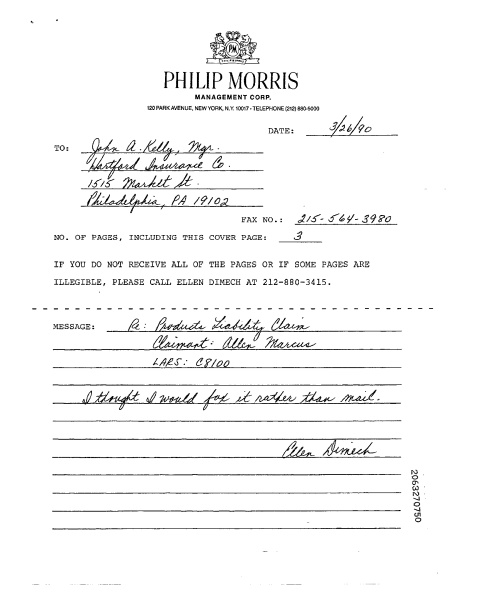 PM
PHILIP MORRIS
MANAGEMENT CORP.
120 PARK AVENUE, NEW YORK, N.Y. 10017 • TELEPHONE (212) 880-5000
DATE: 3/26/90
TO: John A. Kelly, Mgr.
Hartford Insurance Co.
1515 Market St.
Philadelphia, PA 19102
FAX NO.: 215-564-3980
NO. OF PAGES, INCLUDING THIS COVER PAGE: 3
IF YOU DO NOT RECEIVE ALL OF THE PAGES OR IF SOME PAGES ARE
ILLEGIBLE, PLEASE CALL ELLEN DIMECH AT 212-880-3415.
MESSAGE: Re: Products Liability Claim
Claimant: Allen Marcus
LARS: C8100
I thought I would fax it rather than mail.
Ellen Dimech
2063270750